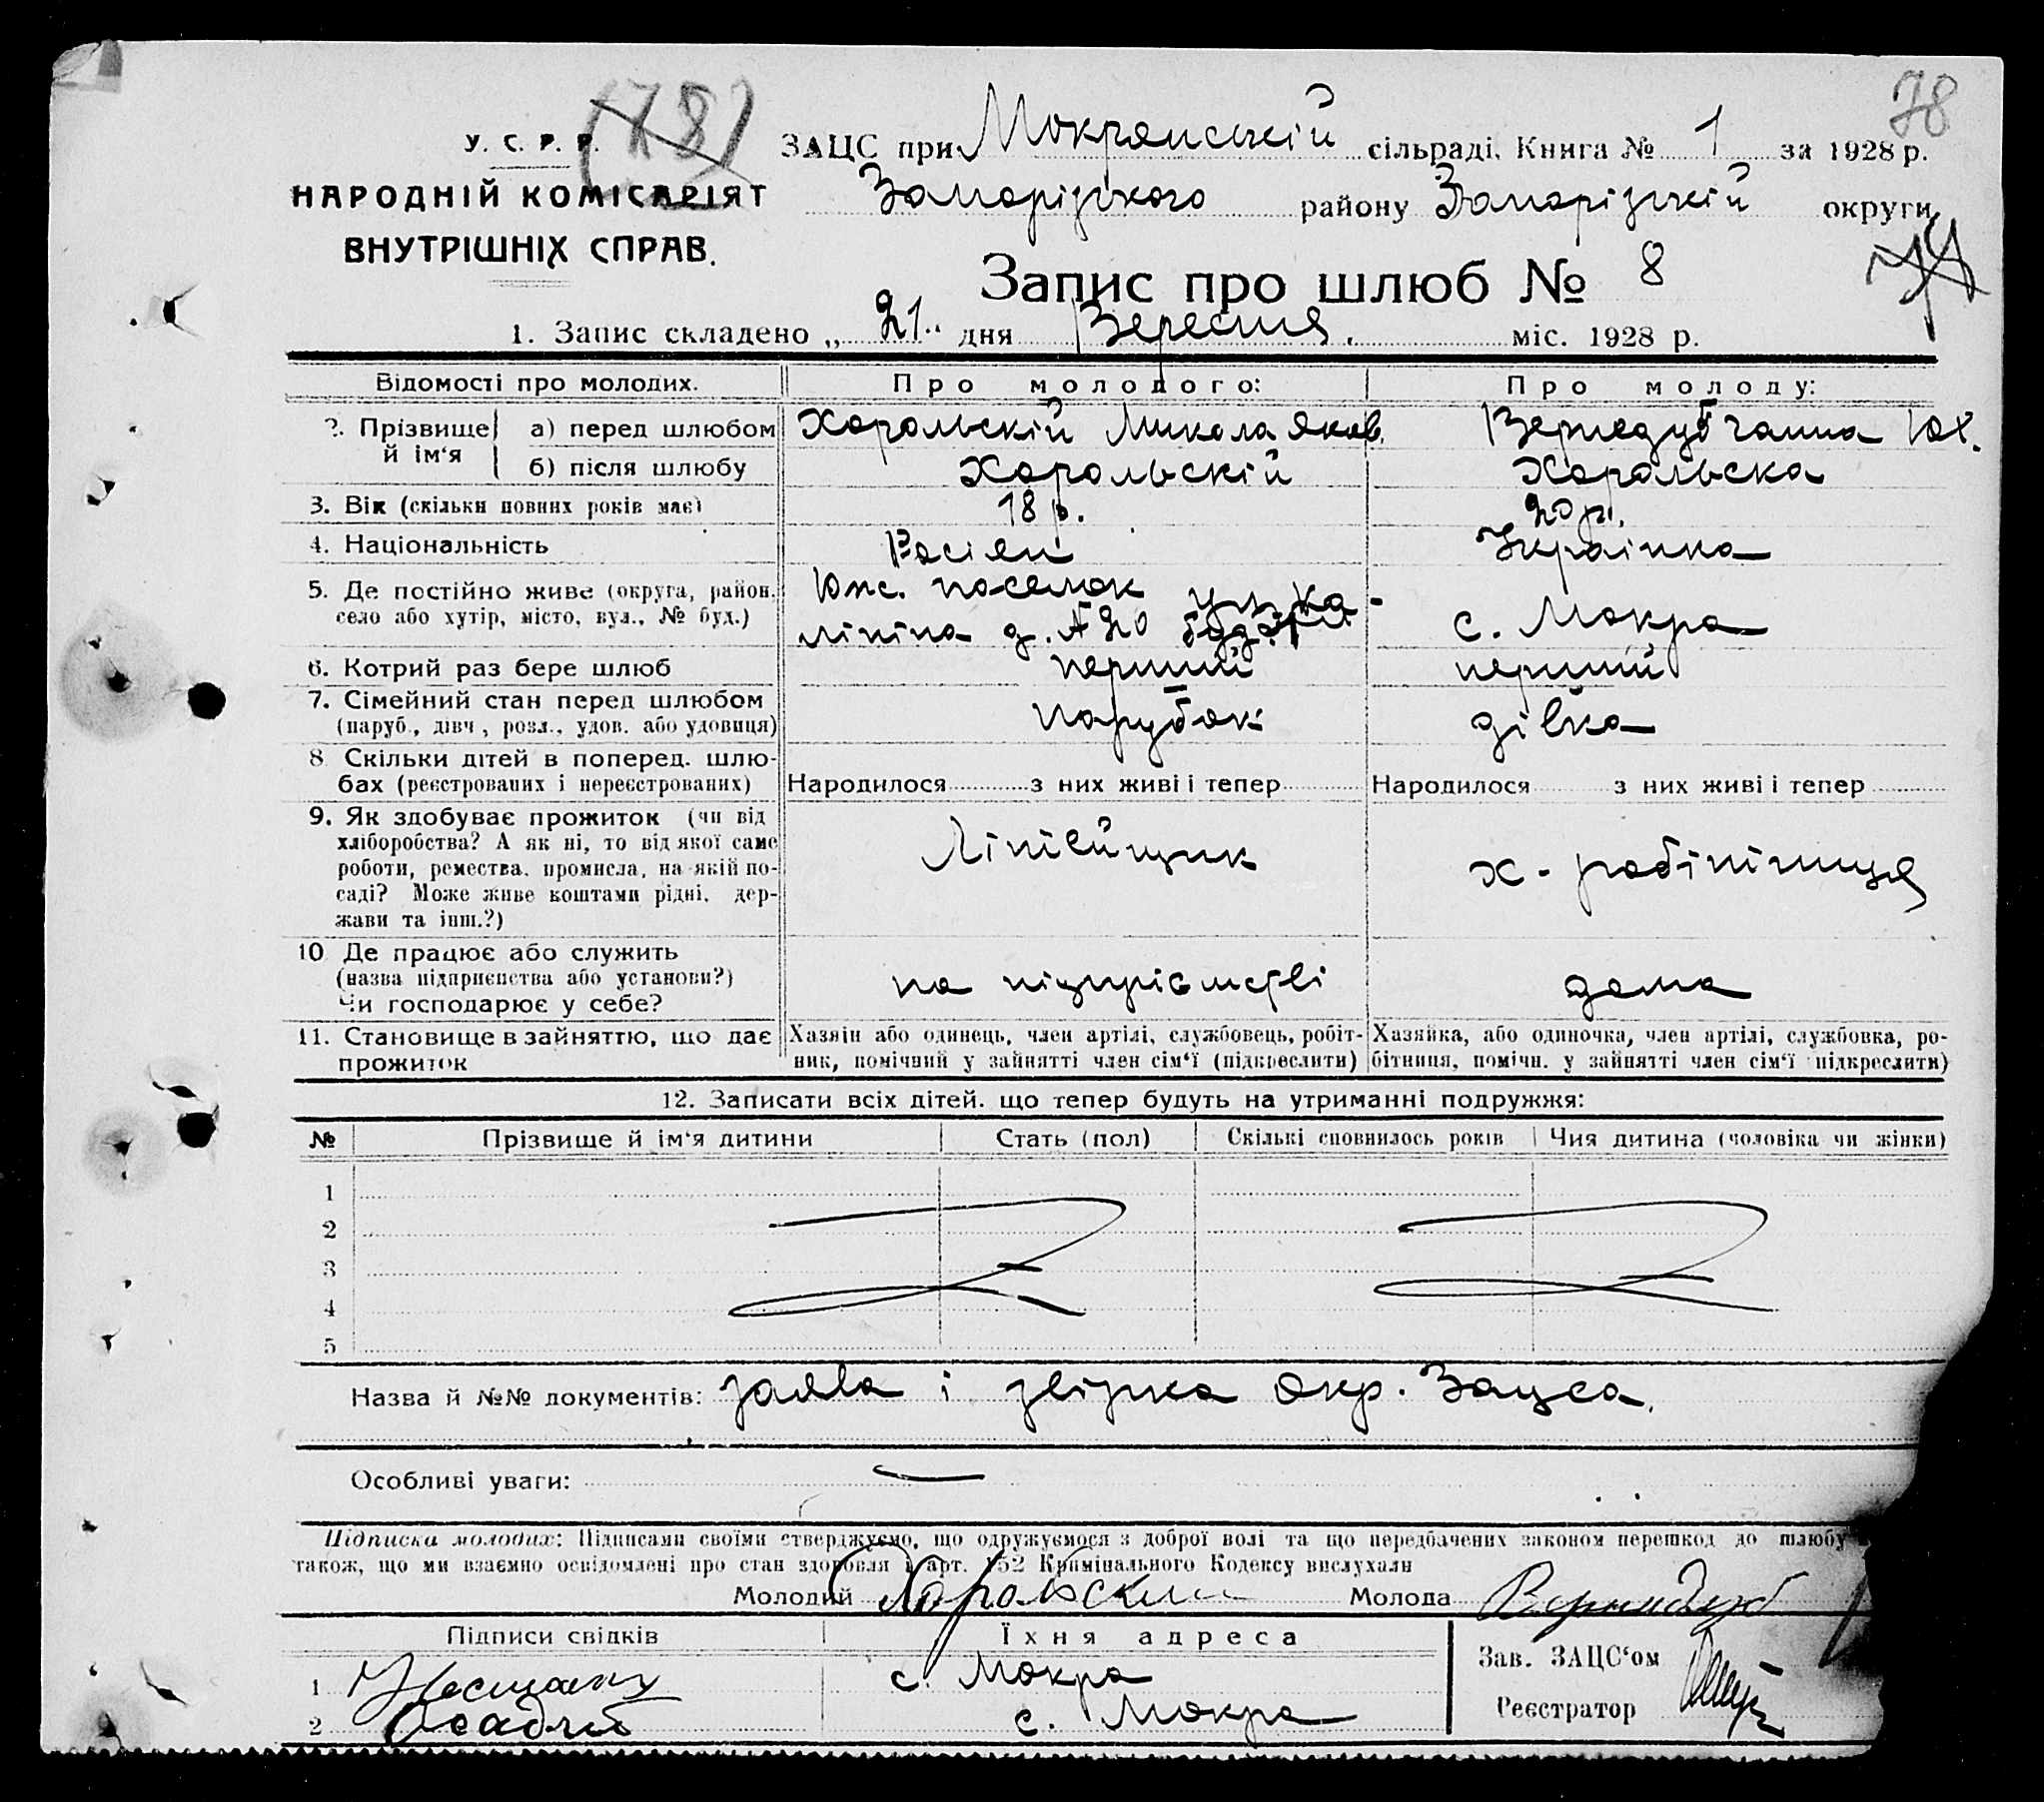 (78) 78
У. С. Р. Р.
НАРОДНІЙ КОМІСАРІЯТ
ВНУТРІШНІХ СПРАВ.
ЗАЦС при Мокрянській сільраді. Книга № 1 за 1928 р.
Запорізького району Запорізькій округи
Запис про шлюб № 8
1. Запис складено „ 21 " дня Вересня міс. 1928 р.
Відомості про молодих. Про молодого: Про молоду:
2. Прізвище й ім'я а) перед шлюбом Харольскій Микола Яков. Вернедубчанна
б) після шлюбу Харольскій Харольска
3. Вік (скільки повних років має) 18 р. 20 р.
4. Національність Росіян Українка
5. Де постійно живе (округа, район, Юж. поселок
село або хутір, місто, вул., № буд.) леніна д. №20 с. Мокра
6. Котрий раз бере шлюб перший перший
7. Сімейний стан перед шлюбом
(паруб., дівч, розл., удов. або удовиця) парубок дівка
8 Скільки дітей в поперед. шлю-
бах (реєстрованих і нереєстрованих) Народилося з них живі і тепер Народилося з них живі і тепер
9. Як здобуває прожиток (чи від
хліборобства? А як ні, то від якої саме
роботи, ремества, промисла, на якій по- Літейщик х-робітниця
саді? Може живе коштами рідні, дер-
жави та інш.?)
10 Де працює або служить
(назва підприєнства або установи?) на підприємстві дома
Чи господарює у себе?
11. Становище в зайняттю, що дає Хазяін або одинець, член артілі, службовець, робіт- Хазяйка, або одиночка, член артілі, службовка, ро-
прожиток ник, помічний у зайнятті член сім'ї (підкреслити) бітниця, помічн. у зайнятті член сім'ї підкреслити)
12. Записати всіх дітей. що тепер будуть на утриманні подружжя:
№ Прізвище й ім'я дитини Стать (пол) Скількі сповнилось років Чия дитина (чоловіка чи жінки)
1
2
3
4
5
Назва й №№ документів: заява і звірка окр. Зацса.
Особливі уваги: —
Підписка молодих: Підписами своїми стверджуємо, що одружуємося з доброї волі та що передбачених законом перешкод до шлюбу
також, що ми взаємно освідомлені про стан здоровля і арт. 152 Кримінального Кодексу вислухали
Молодий Харольский Молода Вернидуб
Підписи свідків Їхня адреса Зав. ЗАЦС'ом
1 с. Мокра
Реєстратор
2 Осадчий с. Мокра